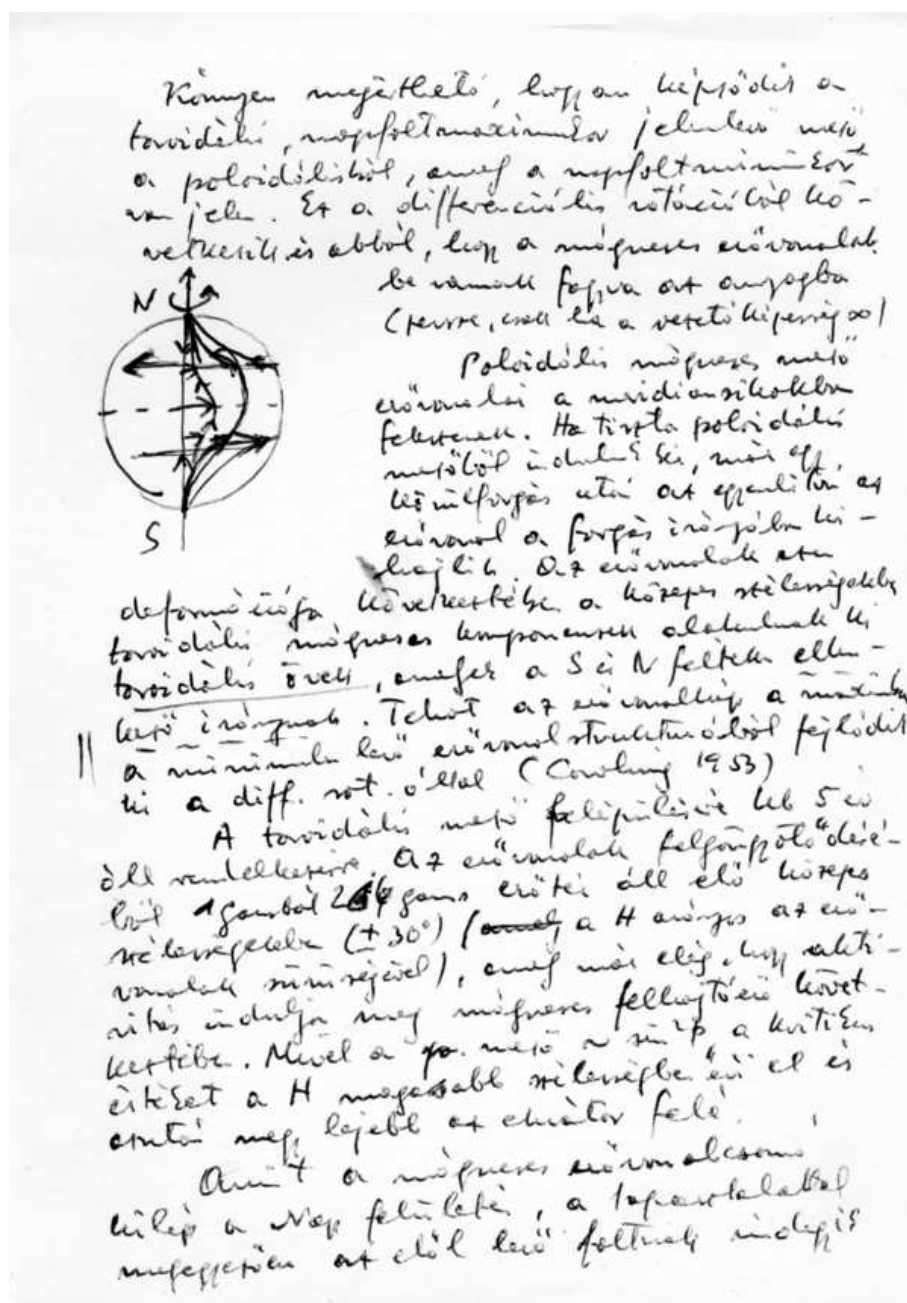 Könnyen megérthető, hogyan képződik a
toroidális, napfoltmaximumkor jelenlevő mező
a poloidálisból, amely a napfoltminimumkor
van jelen. Ez a differenciális rotációból kö-
vetkezik és abból, hogy a mágneses erővonalak
be vannak fagyva az anyagba
(persze, csak ha a vezetőképesség ∞)
N
Poloidális mágneses mező
erővonalai a meridiansíkokban
fekszenek. Ha tiszta poloidális
mezőből indulunk ki, már egy
körülforgás után az egyenlítőn az
erővonal a forgás irányában ki-
S
hajlik. Az erővonalak ezen
deformációja következtében a közepes szélességekben
toroidális mágneses komponensek alakulnak ki
toroidális övek, amelyek a S és N féltekén ellen-
kező irányúak. Tehát az erővonalkép a maximumban
a minimumban levő erővonalstruktúrából fejlődik
ki a diff. rot. által (Cowling 1953)
A toroidális mező felépülésére kb 5 év
áll rendelkezésre. Az erővonalak felgöngyölődésé-
ből 1 gaussból gauss erőtér áll elő közepes
szélességekben (±30°) (a H arányos az erő-
vonalak sűrűségével), amely már elég, hogy akti-
vitás induljon meg mágneses felhajtóerő követ-
keztében. Mivel a mező ~ sin²φ, a kritikus
értéket a H magasabb szélességben éri el és
azután megy lejjebb az ekvátor felé.
Amint a mágneses erővonalcsomó
kilép a Nap felületén, a tapasztalattal
megegyezően az elöl levő foltnak mindegyik